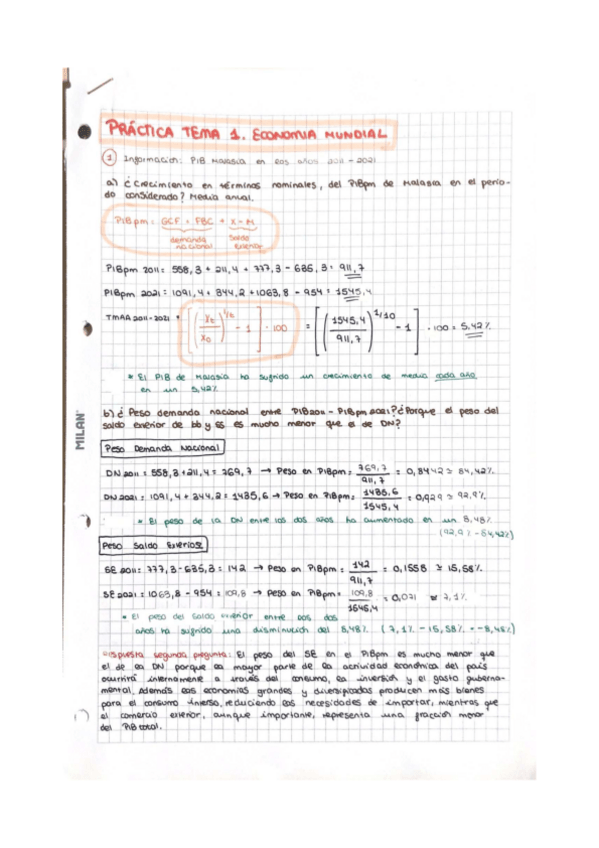 PRÁCTICA TEMA 1. ECONOMIA MUNDIAL
1 Información: PIB Malasia en los años 2011 - 2021
a) ¿Crecimiento en términos nominales, del PIBpm de Malasia en el perio-
do considerado? Media anual.
PIBpm = GCF + FBC + X - M
demanda nacional saldo exterior
PIBpm 2011 = 558,3 + 211,4 + 777,3 - 635,3 = 911,7
PIBpm 2021 = 1091,4 + 344,2 + 1063,8 - 954 = 1545,4
TMAA 2011-2021 = [(Yt/X0)^1/t - 1] · 100 = [(1545,4/911,7)^1/10 - 1] · 100 = 5,42%
* El PIB de Malasia ha sufrido un crecimiento de media cada año
en un 5,42%
b) ¿Peso demanda nacional entre PIB2011 - PIBpm 2021? ¿Porque el peso del
saldo exterior de bb y ss es mucho menor que el de DN?
MILAN
Peso Demanda Nacional
DN 2011 = 558,3 + 211,4 = 769,7 → Peso en PIBpm = 769,7/911,7 = 0,8442 ≅ 84,42%
DN 2021 = 1091,4 + 344,2 = 1435,6 → Peso en PIBpm = 1435,6/1545,4 = 0,929 ≅ 92,9%
* El peso de la DN entre los dos años ha aumentado en un 8,48%
(92,9% - 84,42%)
SE 2011 = 777,3 - 635,3 = 142 → Peso en PIBpm = 142/911,7 = 0,1558 ≅ 15,58%
SE 2021 = 1063,8 - 954 = 109,8 → Peso en PIBpm = 109,8/1545,4 = 0,071 ≅ 7,1%
* El peso del saldo exterior entre dos dos
años ha sufrido una disminución del 8,48% (7,1% - 15,58% = -8,48%)
Respuesta segunda pregunta: El peso del SE en el PIBpm es mucho menor que
el de la DN porque la mayor parte de la actividad económica del país
ocurrirá internamente a través del consumo, la inversión y el gasto guberna-
mental. Además las economías grandes y diversificadas producen más bienes
para el consumo interno, reduciendo las necesidades de importar, mientras que
el comercio exterior, aunque importante, representa una fracción menor
del PIB total.